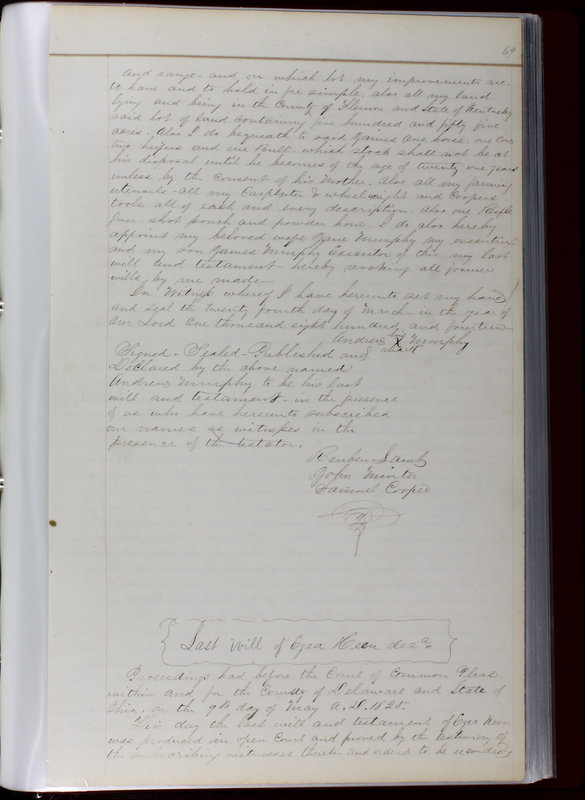 69
and range - and on which lot my improvements are.
to have and to hold in fee simple. also all my land
lying and being in the County of Flemon and State of Kentucky
said lot of land Containing five hundred and fifty five
acres. Also I do bequeath to said James One horse. one Cow
two heifers and one Bull. which stock shall not be at
his disposal until he becomes of the age of twenty one years
unless by the Consent of his Mother. Also all my farming
utensils - all my Carpenter & wheelwright and Coopers
tools all of each and every description. Also one Rifle
Gun - shot pouch and powder horn. I do also hereby
appoint my beloved wife Jane Murphy my executrix
and my son James Murphy Executor of this my last
will and testament hereby revoking all former
wills by me made -
In Witness whereof I have hereunto set my hand
and seal the twenty fourth day of March - in the year of
Our Lord One thousand eight hundred and fourteen -
Andrew his X mark Murphy
Signed - Sealed - Published and
Declared by the above named
Andrew Murphy to be his last
will and testament - in the presence
of us who have hereunto subscribed
our names as witnesses in the
presence of the testator.
Reuben Lamb
John Minter
Samuel Cooper
Last Will of Ezra Keen decd
Proceedings had before the Court of Common Pleas
within and for the County of Delaware and State of
Ohio, on the 9th day of May A.D. 1825.
This day the last will and testament of Ezra Keen
was produced in open Court and proved by the testimony of
the subscribing witnesses thereto and ordered to be recorded